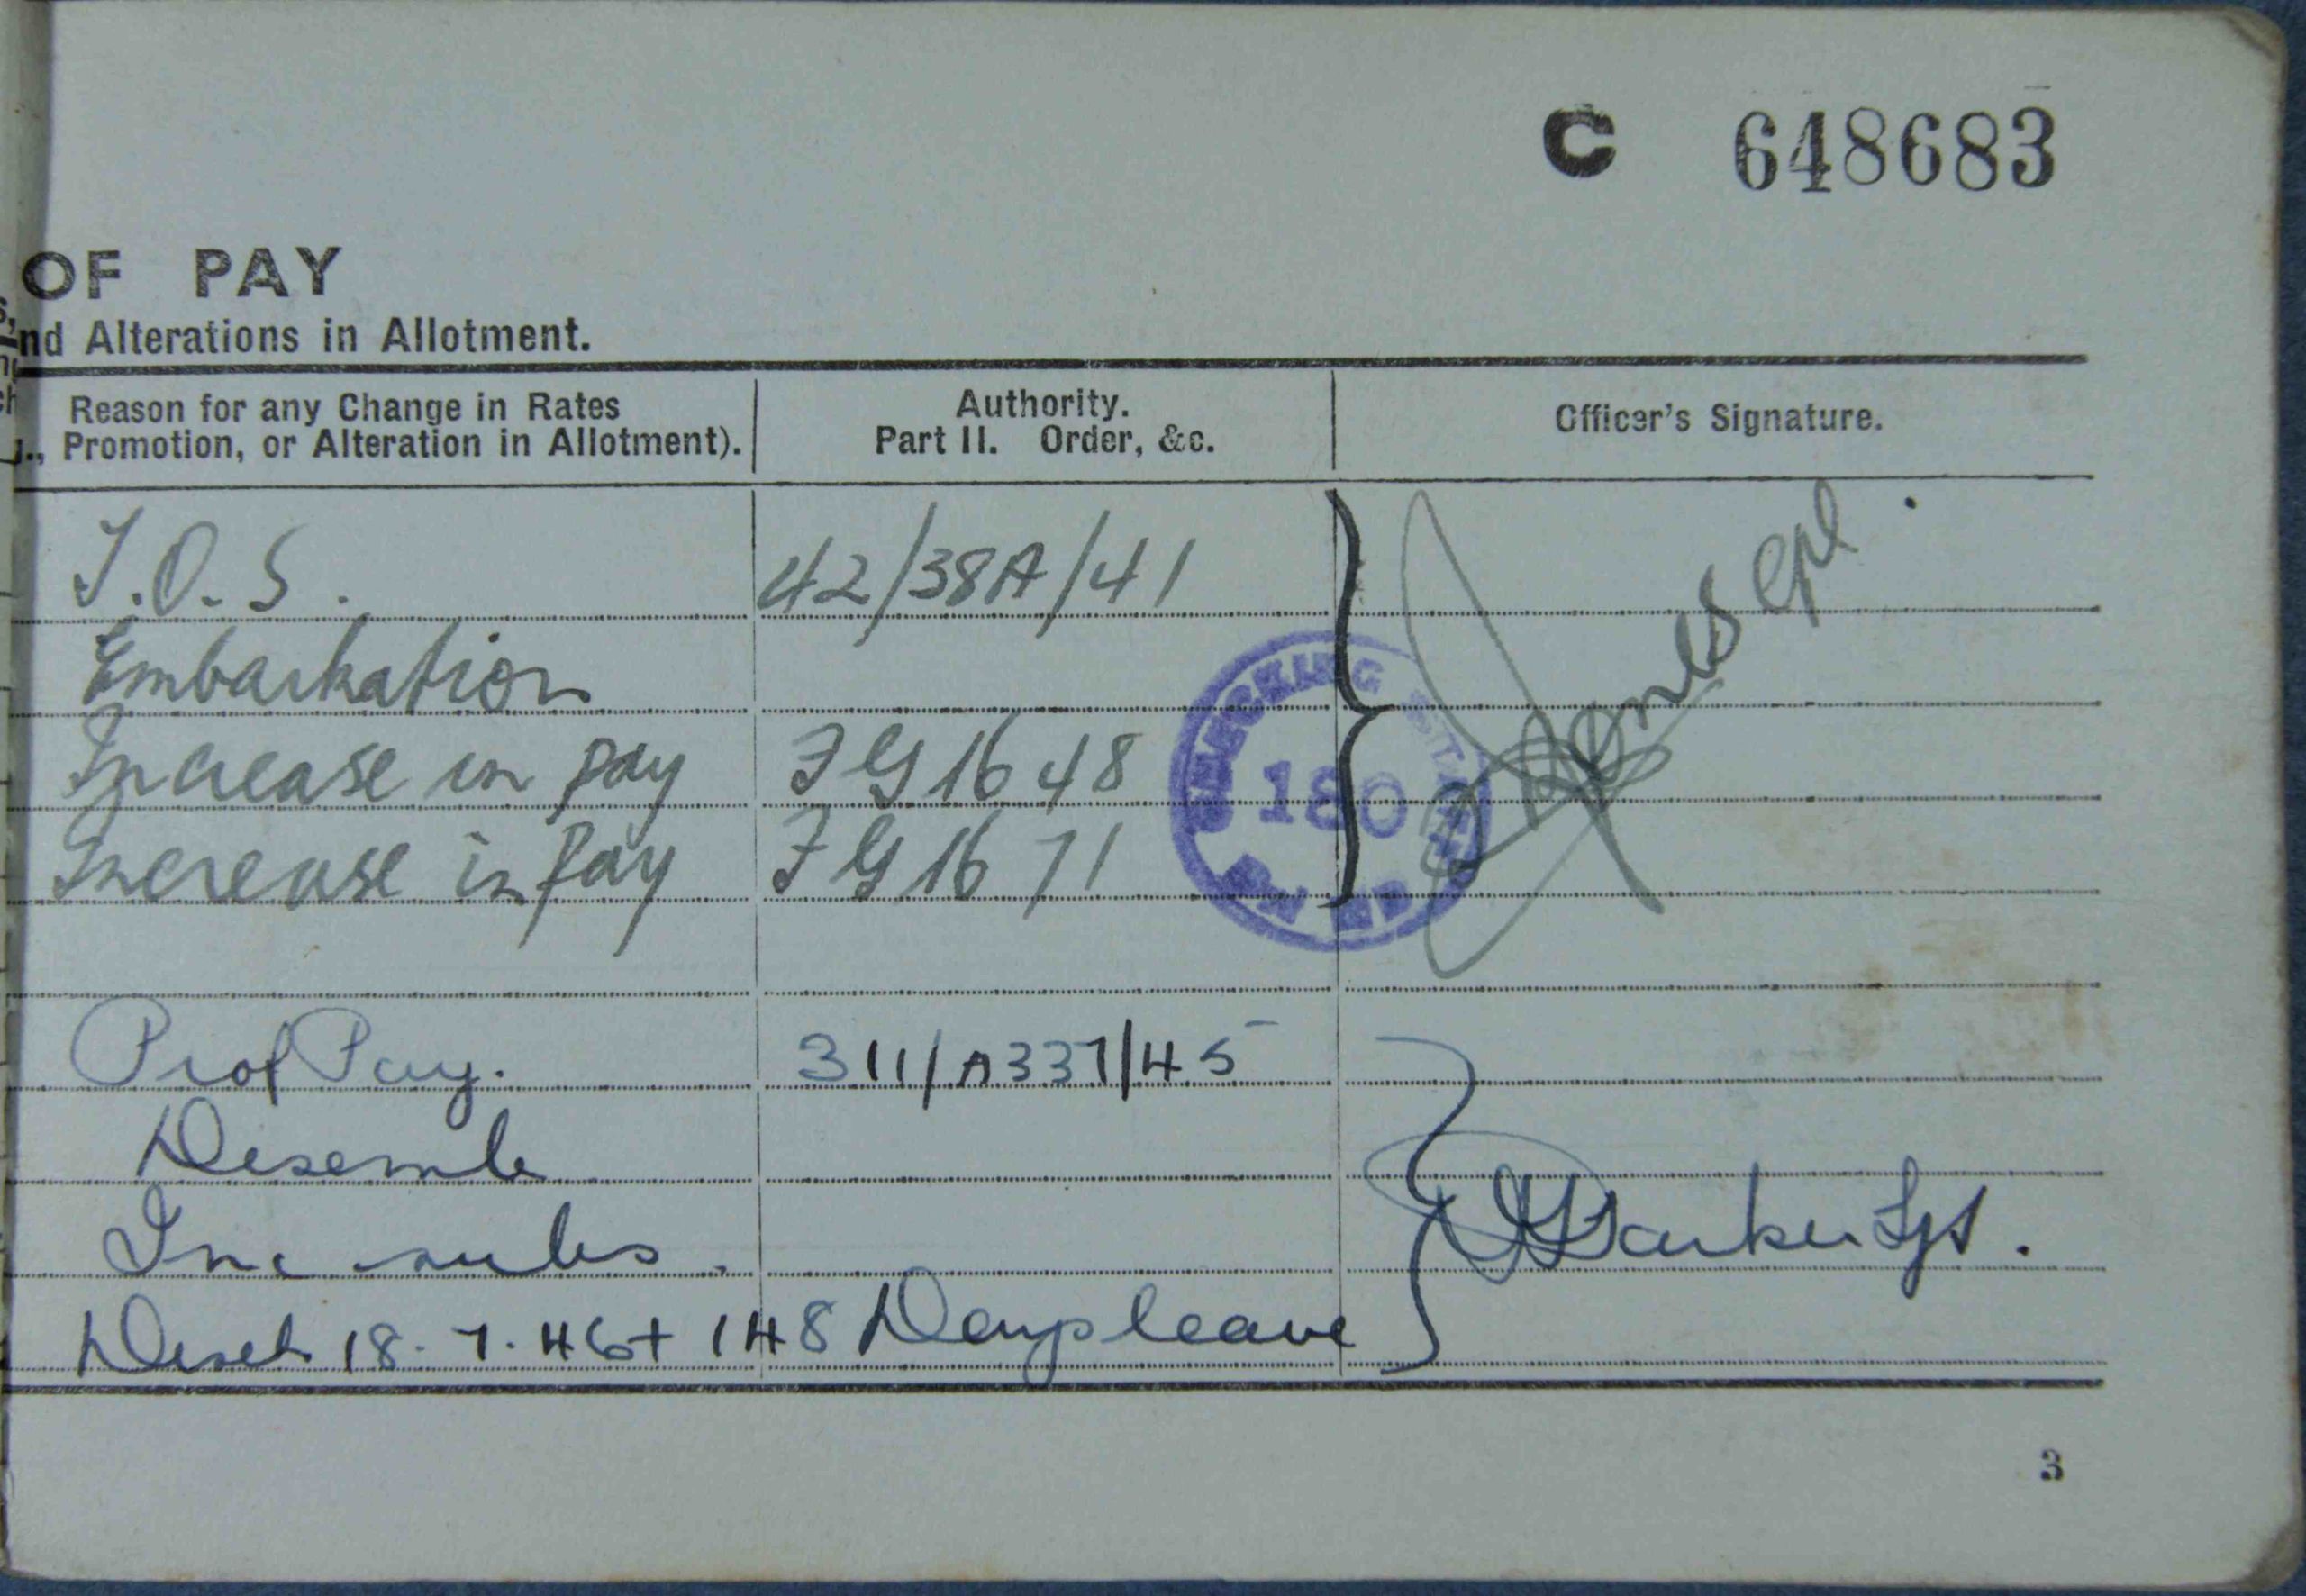 C 648683
OF PAY
nd Alterations in Allotment.
Reason for any Change in Rates
., Promotion, or Alteration in Allotment).
Authority.
Part II. Order, &c.
Officer's Signature.
T.O.S. 42/38A/41
Embarkation
Increase in pay FG 1648
Increase in pay FG 1671
Jones Cpl.
CHECKING
180
Prof Pay. 311/A337/45
Disemb
Inc subs.
Parker Sgt.
Disch 18.7.46 + 148 Days leave
3